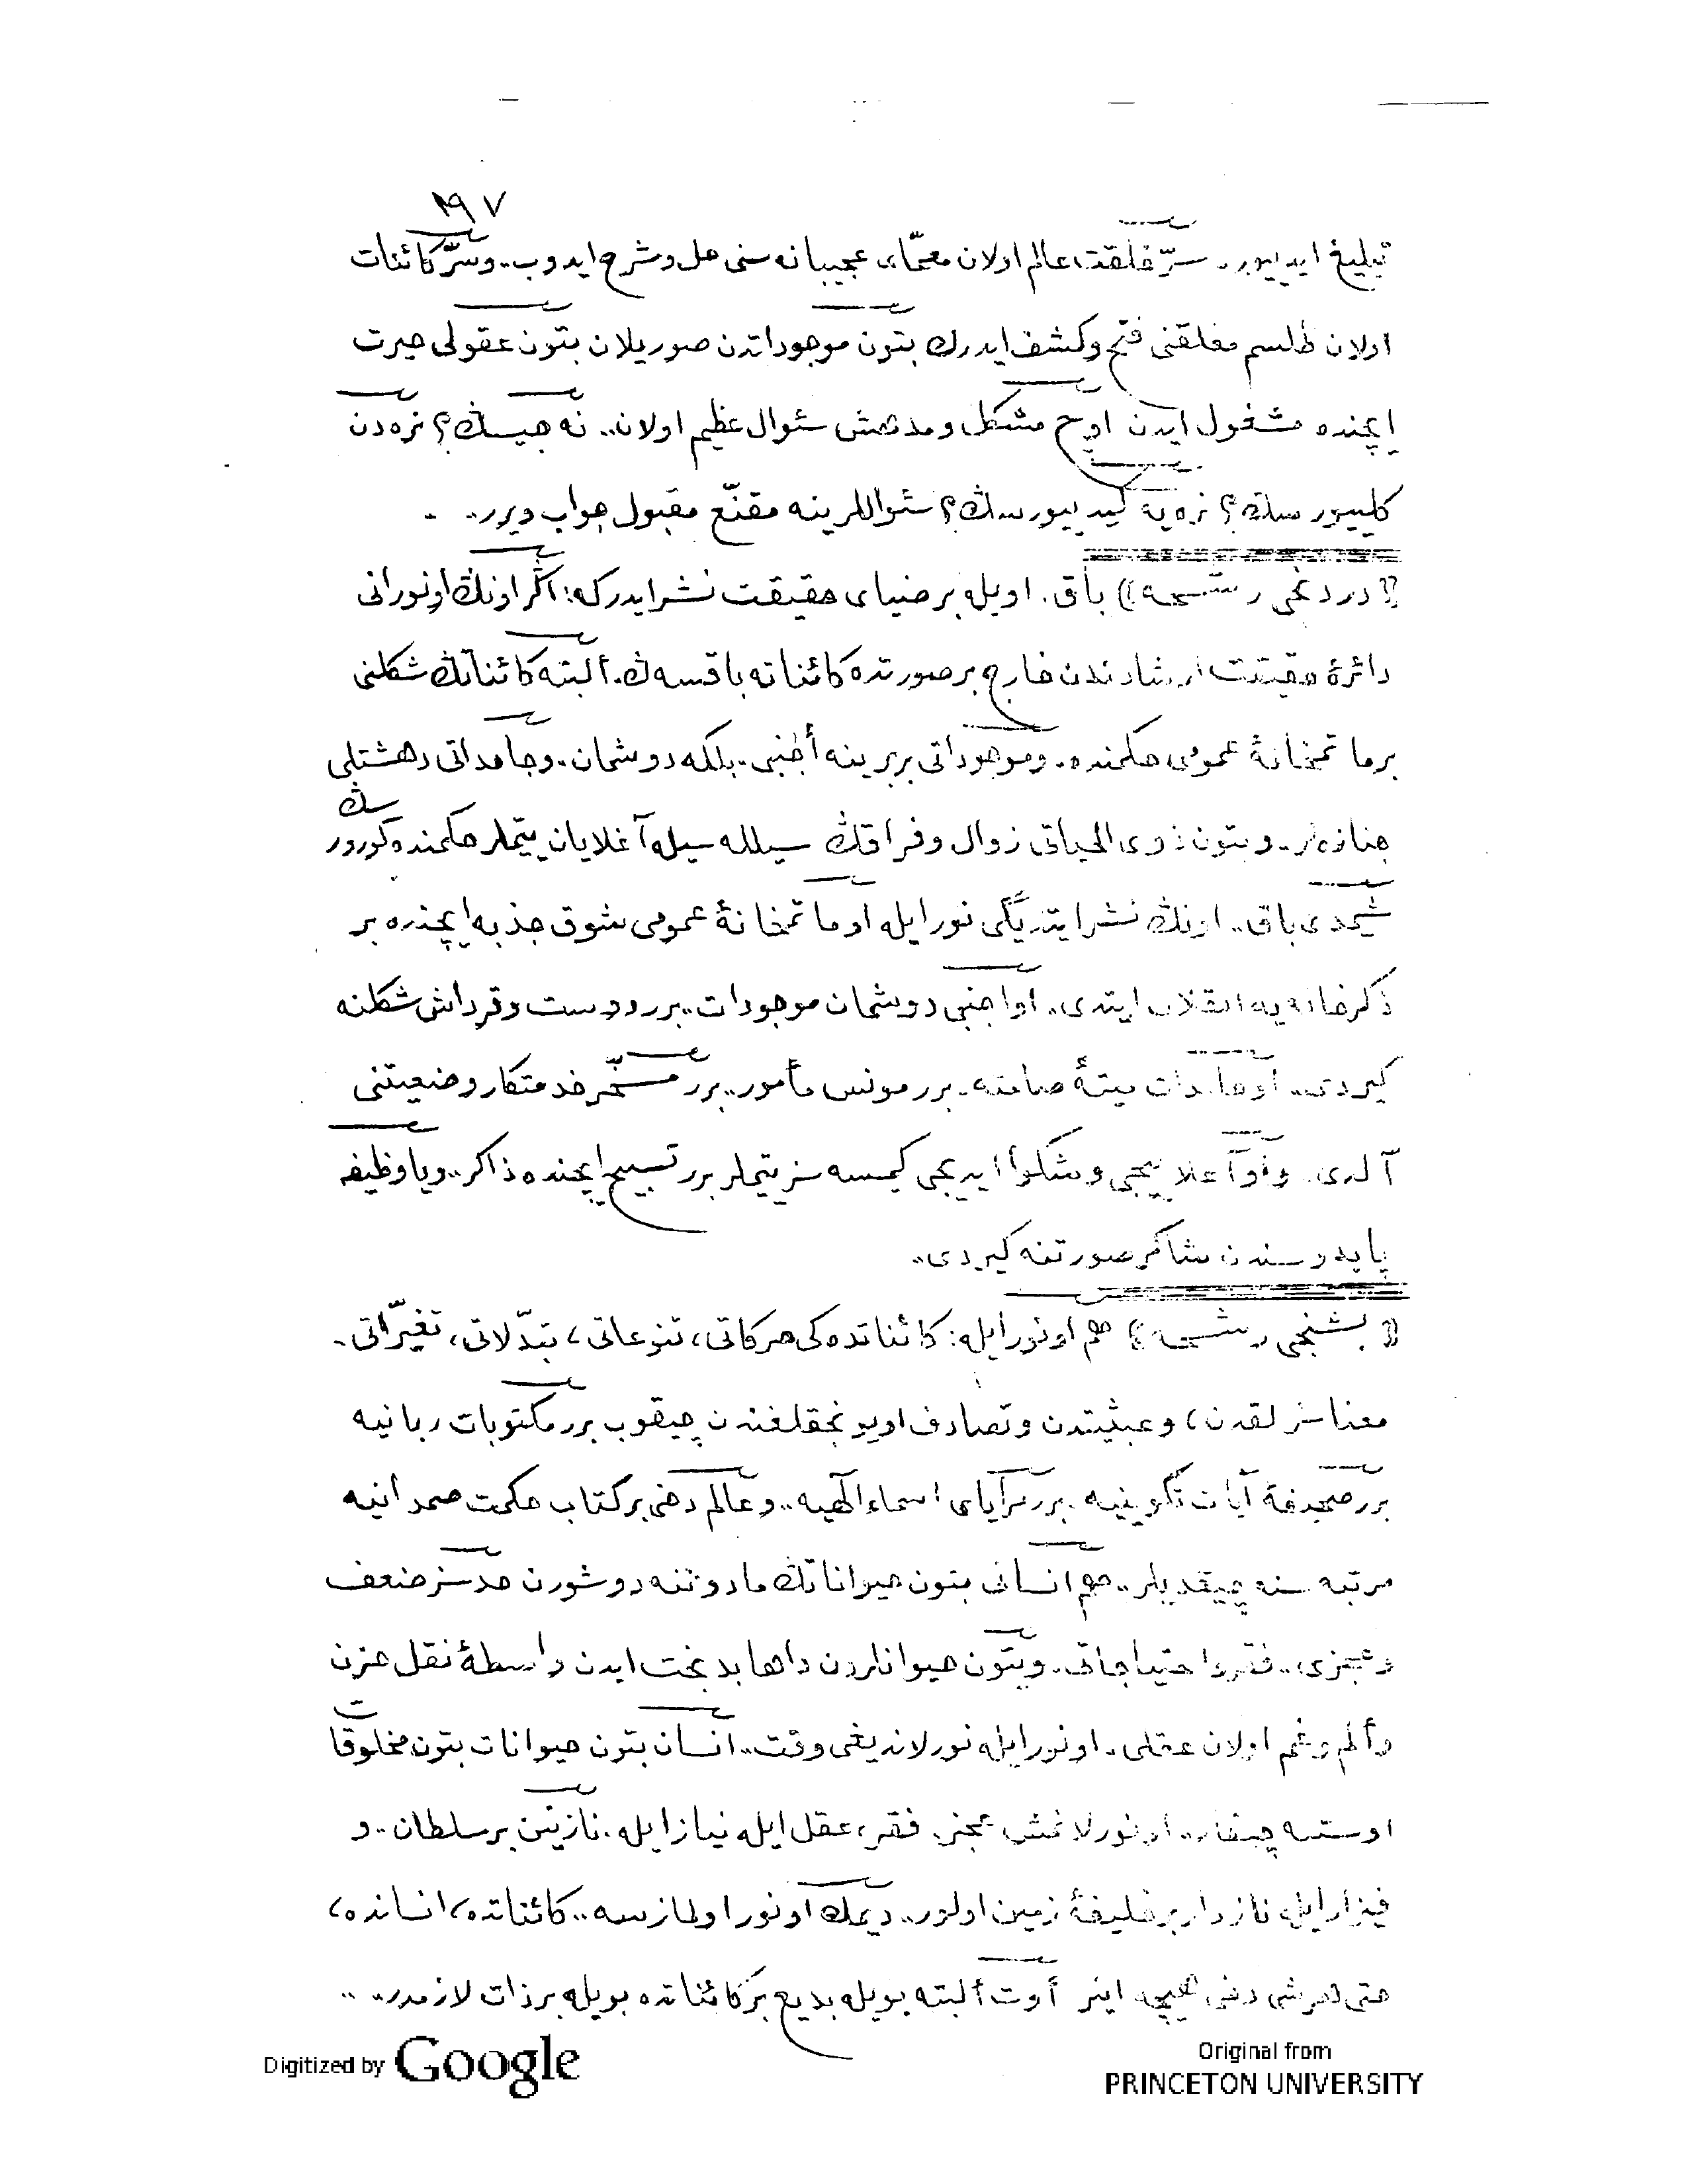 ١٩٧
تبليغ ايدييور.. سرّ خلقت عالم اولان معمّاى عجيبانه سنى حل و شرح ايدوب.. و سرّ كائنات
اولان طلسم مغلقنى فتح و كشف ايدرك بتون موجوداتدن صوريلان بتون عقولى حيرت
ايچنده مشغول ايدن اوچ مشكل و مدهش سئوال عظيم اولان.. نه جيسڭ؟ نره دن
كلييورسڭ؟ نره يه كيدييورسڭ؟ سئواللرينه مقنّع مقبول جواب ويرر..
«دردنجى رشحه» باق. اويله بر ضياى حقيقت نشر ايدركه: اگر اونڭ او نورانى
دائرهٔ حقيقت ارشادندن خارج بر صورتده كائناته باقسه ڭ. ألبته كائناتڭ شكلنى
بر ماتمخانهٔ عمومى حكمنده. و موجوداتى بربرينه أجنبى. بلكه دوشمان. و جامداتى دهشتلى
جنازه لر.. و بتون ذوى الحياتى زوال و فراقڭ سيلله سيله آغلايان يتيملر حكمنده كورورسڭ
شيمدى باق.. اونڭ نشر ايتديگى نور ايله او ماتمخانهٔ عمومى شوق جذبه ايچنده بر
ذكرخانه يه انقلاب ايتدى. او اجنبى دوشمان موجودات.. برر دوست و قرداش شكلنه
كيردى.. او جامدات ميتهٔ صامته. برر مونس مأمور.. برر مسخّر خدمتكار وضعيتنى
آلدى. و او آغلاييجى و شكوا ايديجى كيمسه سز يتيملر برر تسبيح ايچنده ذاكر.. و يا وظيفه
پايدوسندن شاكر صورتنه كيردى..
«بشنجى رشحه» هم او نور ايله: كائناتده كى حركاتى، تنوعاتى، تبدّلاتى، تغيّراتى.
معناسزلقدن، و عبثيتدن و تصادف اويونجقلغندن چيقوب برر مكتوبات ربانيه
برر صحيفهٔ آيات تكوينيه. برر مراياى اسماء الٓهيه.. و عالم دخى بر كتاب حكمت صمدانيه
مرتبه سنه چيقديلر.. هم انسانى بتون حيواناتڭ مادوننه دوشورن حدسز ضعف
و عجزى.. فقر و احتياجاتى.. و بتون حيوانلردن داها بدبخت ايدن واسطهٔ نقل حزن
و ألم و غم اولان عقلى.. او نور ايله نورلانديغى وقت.. انسان بتون حيوانات بتون مخلوقات
اوستنه چيقار.. او نورلانمش عجز. فقر، عقل ايله نياز ايله. نازنين بر سلطان.. و
فيزار ايله نازدار بر خليفهٔ زمين اولور.. ديمك او نور اولمازسه.. كائناتده، انسانده،
حتى هر شى دخى هيچه اينر أوت ألبته بويله بديع بر كائناتده بويله بر ذات لازمدر..
Digitized by Google
Original from
PRINCETON UNIVERSITY